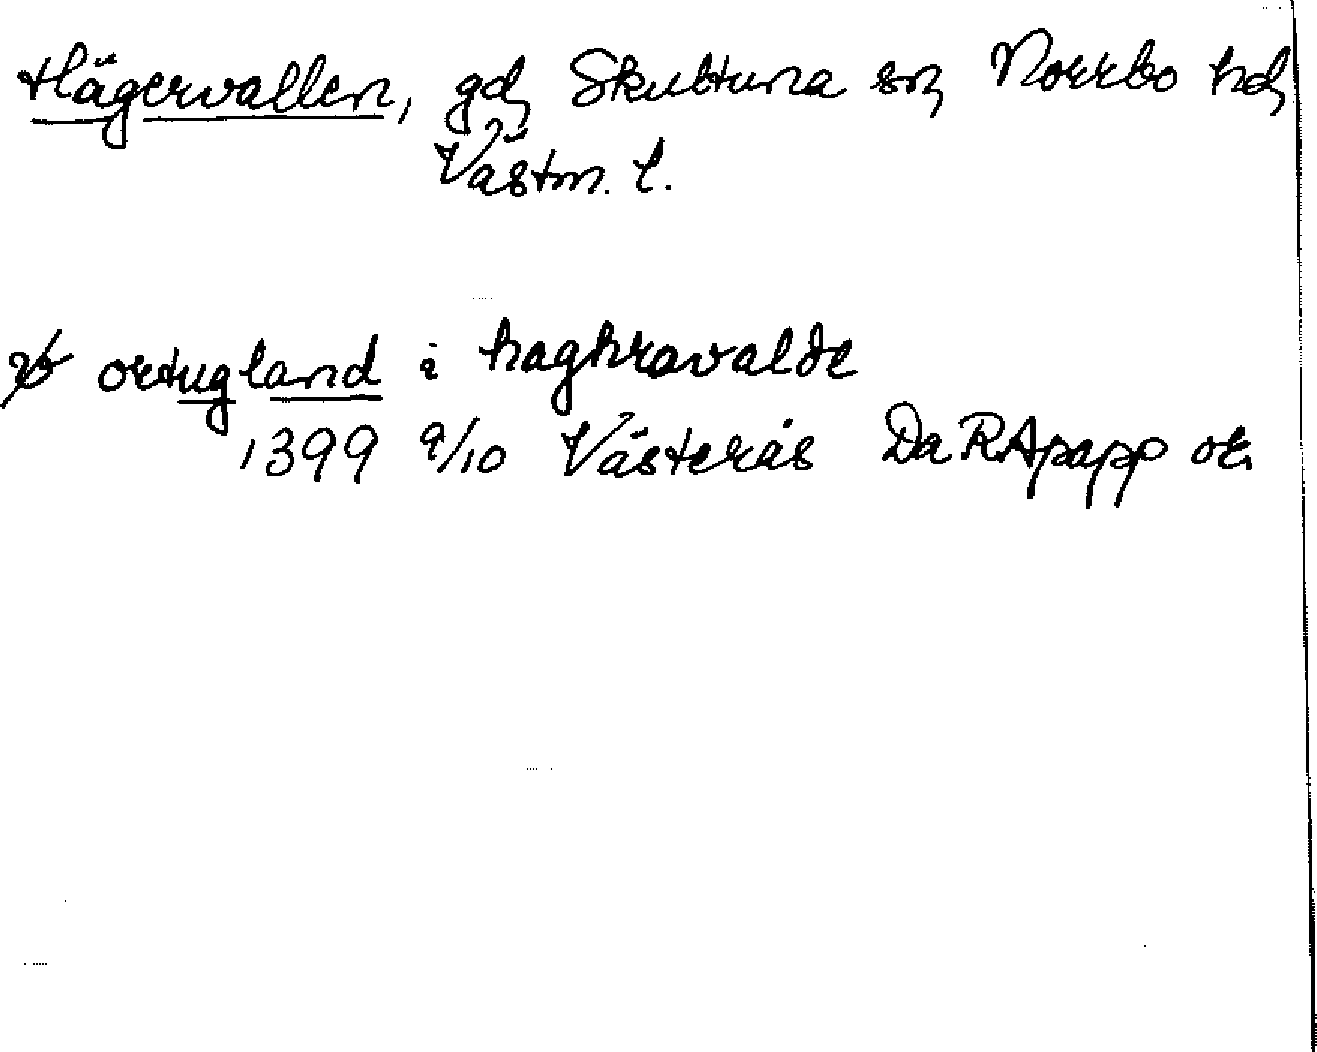 Hägervallen, gd, Skultuna sn, Norrbo hd,
Västm. l.
ortugland i haghravalde
1399 9/10 Västerås Da RApapp or.